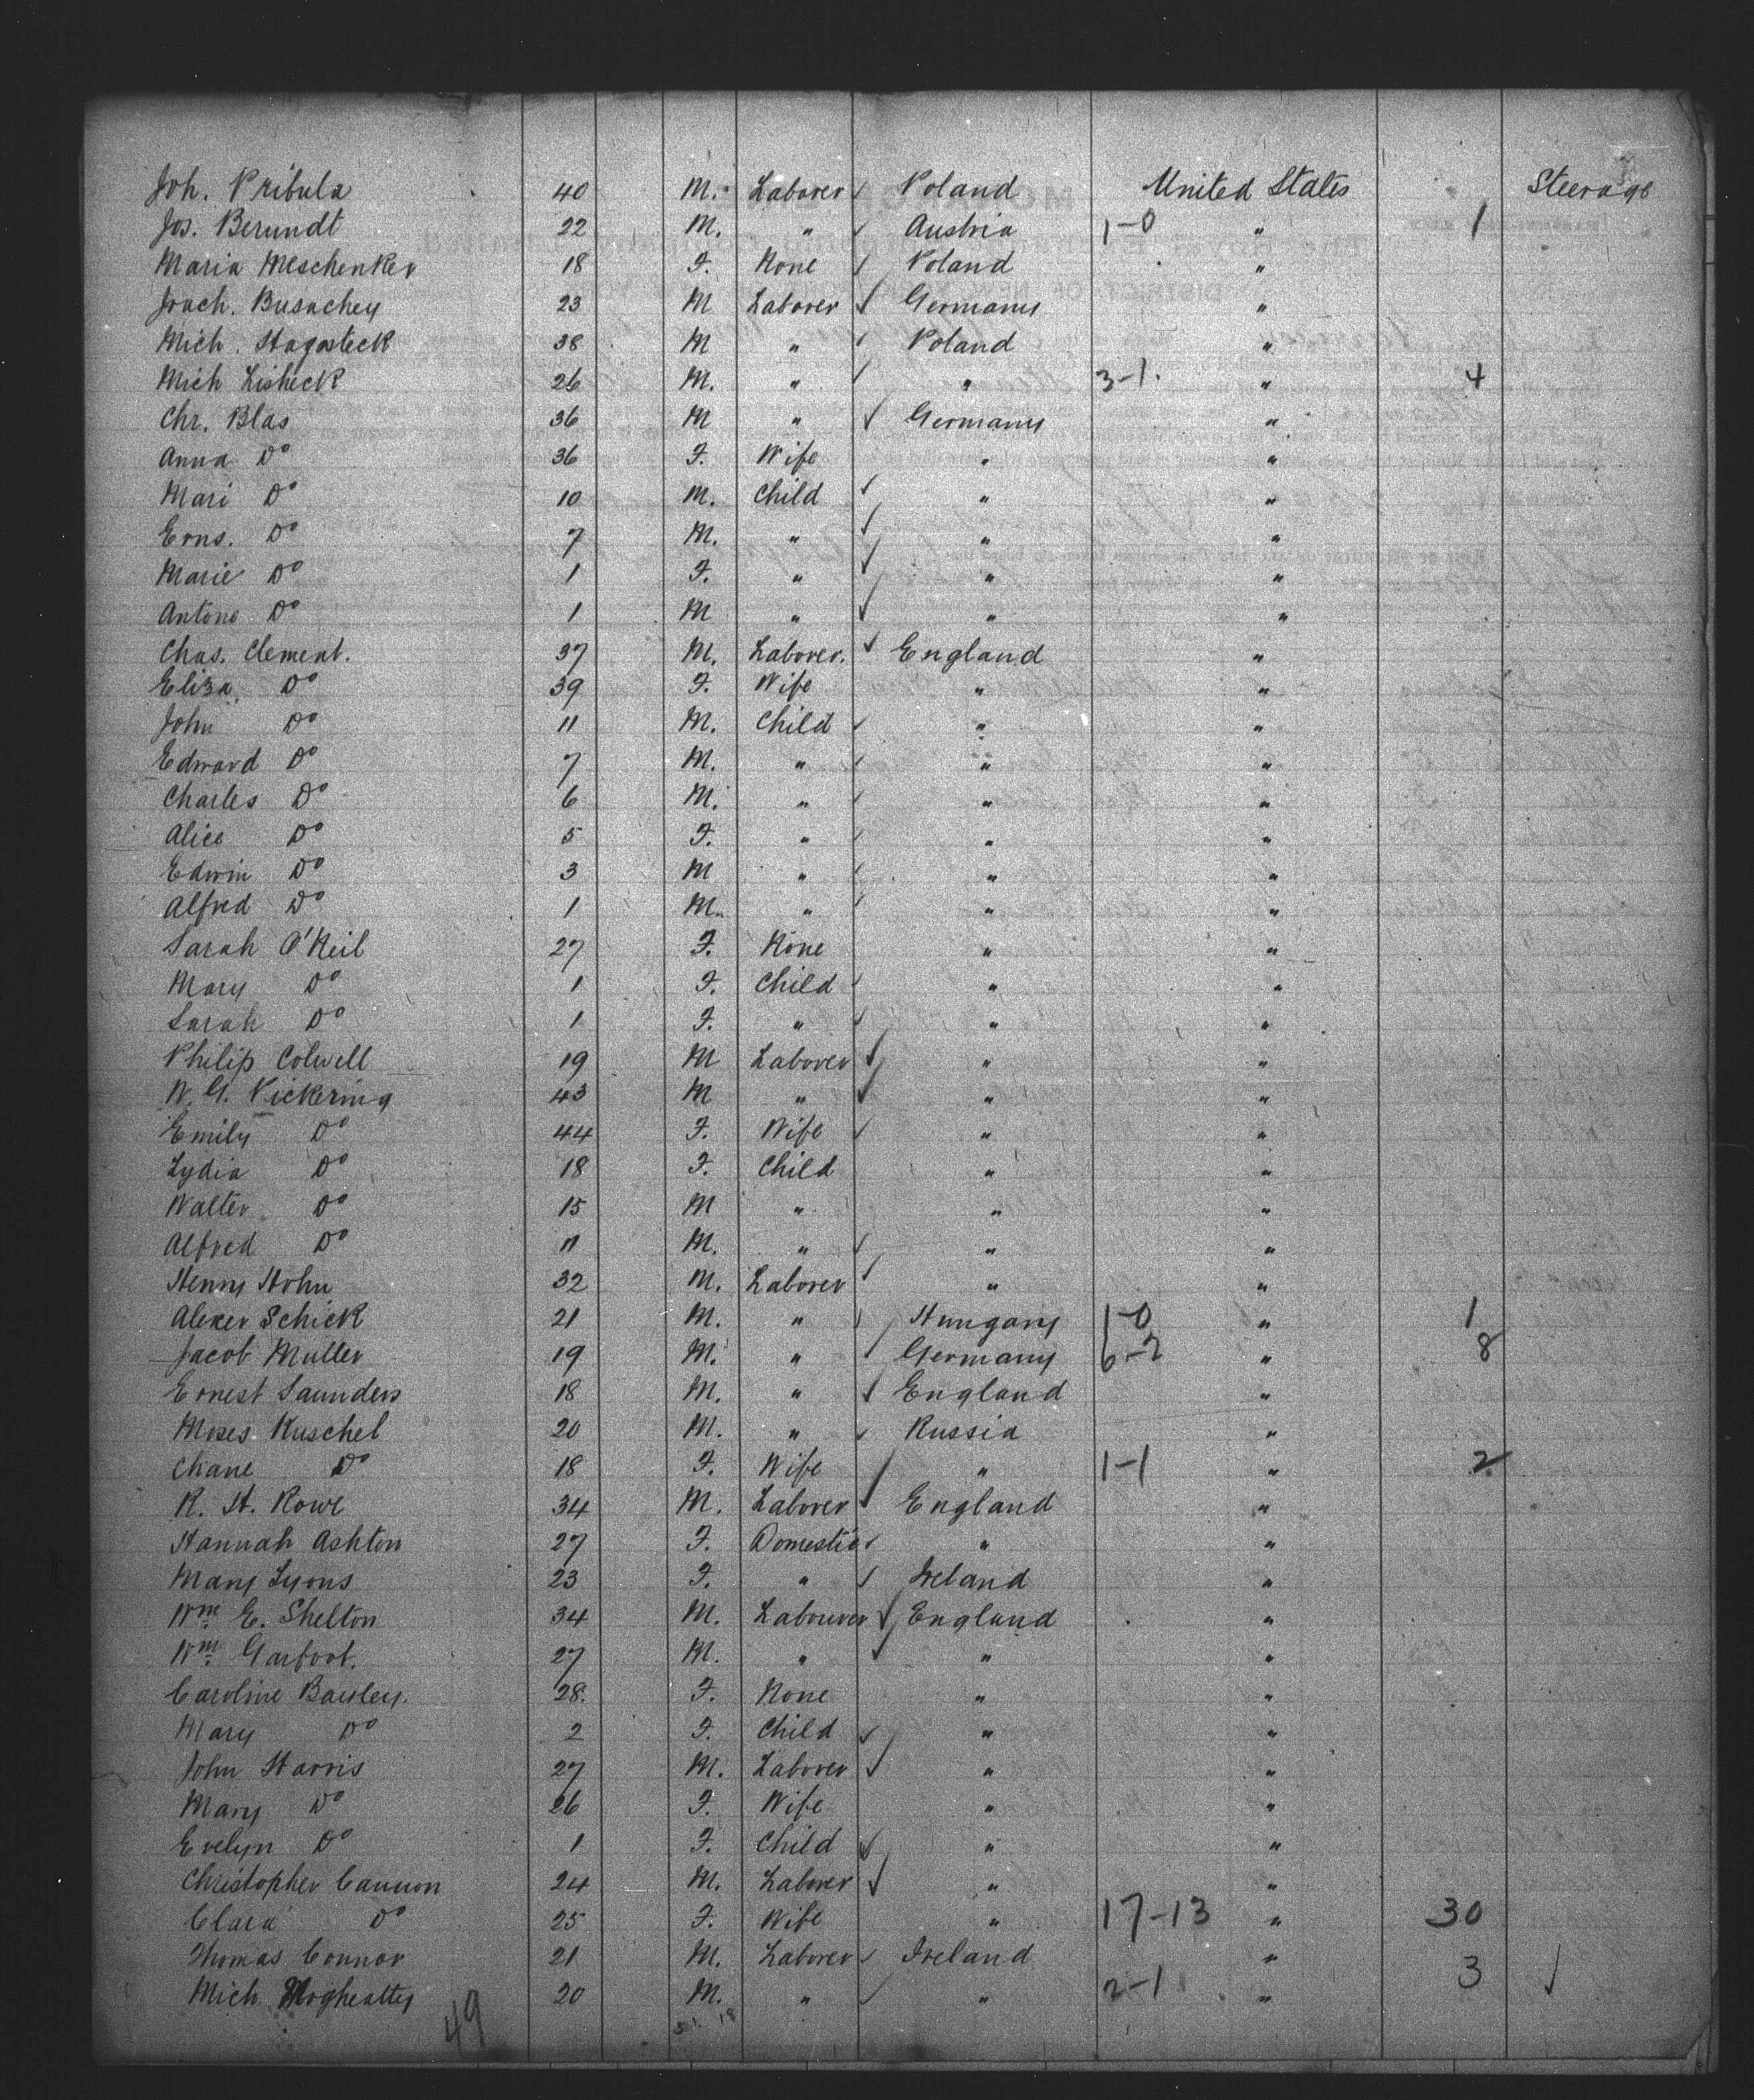 Joh. Pribula 40 M. Laborer Poland United States Steerage
Jos. Berundt 22 M. " Austria 1-0 " 1
Maria Meschenker 18 F. None Poland "
Joach. Busachey 23 M Laborer Germany "
Mich. Stagasteck 38 M " Poland "
Mich Lisheck 26 M. " " 3-1. " 4
Chr. Blas 36 M " Germany "
Anna Do 36 F. Wife " "
Mari Do 10 M. Child " "
Erns. Do 7 M. " " "
Marie Do 1 F. " " "
Antone Do 1 M " " "
Chas. Clement. 37 M. Laborer. England "
Eliza Do 39 F. Wife " "
John Do 11 M. Child " "
Edward Do 7 M. " " "
Charles Do 6 M. " " "
Alice Do 5 F. " " "
Edwin Do 3 M " " "
Alfred Do 1 M. " " "
Sarah O'Neil 27 F. None " "
Mary Do 1 F. Child " "
Sarah Do 1 F. " " "
Philip Colwell 19 M Laborer " "
W. G. Pickering 43 M " " "
Emily Do 44 F. Wife " "
Lydia Do 18 F. Child " "
Walter Do 15 M " " "
Alfred Do 11 M. " " "
Henry Hohn 32 M. Laborer " "
Alexer Schick 21 M. " Hungary 1-0 " 1
Jacob Muller 19 M. " Germany 6-2 " 8
Ernest Saunders 18 M. " England "
Moses Kuschel 20 M. " Russia "
Chane Do 18 F. Wife " 1-1 " 2
R. H. Rowe 34 M. Laborer England "
Hannah Ashton 27 F. Domestic " "
Mary Lyons 23 F. " Ireland "
Wm. E. Shelton 34 M. Labourer England "
Wm. Garfoot. 27 M. " " "
Caroline Baisley. 28. F. None " "
Mary Do 2 F. Child " "
John Harris 27 M. Laborer " "
Mary Do 26 F. Wife " "
Evelyn Do 1 F. Child " "
Christopher Cannon 24 M. Laborer " "
Clara Do 25 F. Wife " 17-13 " 30
Thomas Connor 21 M. Laborer Ireland "
Mich Hogheatty 20 M. " " 2-1 " 3
49